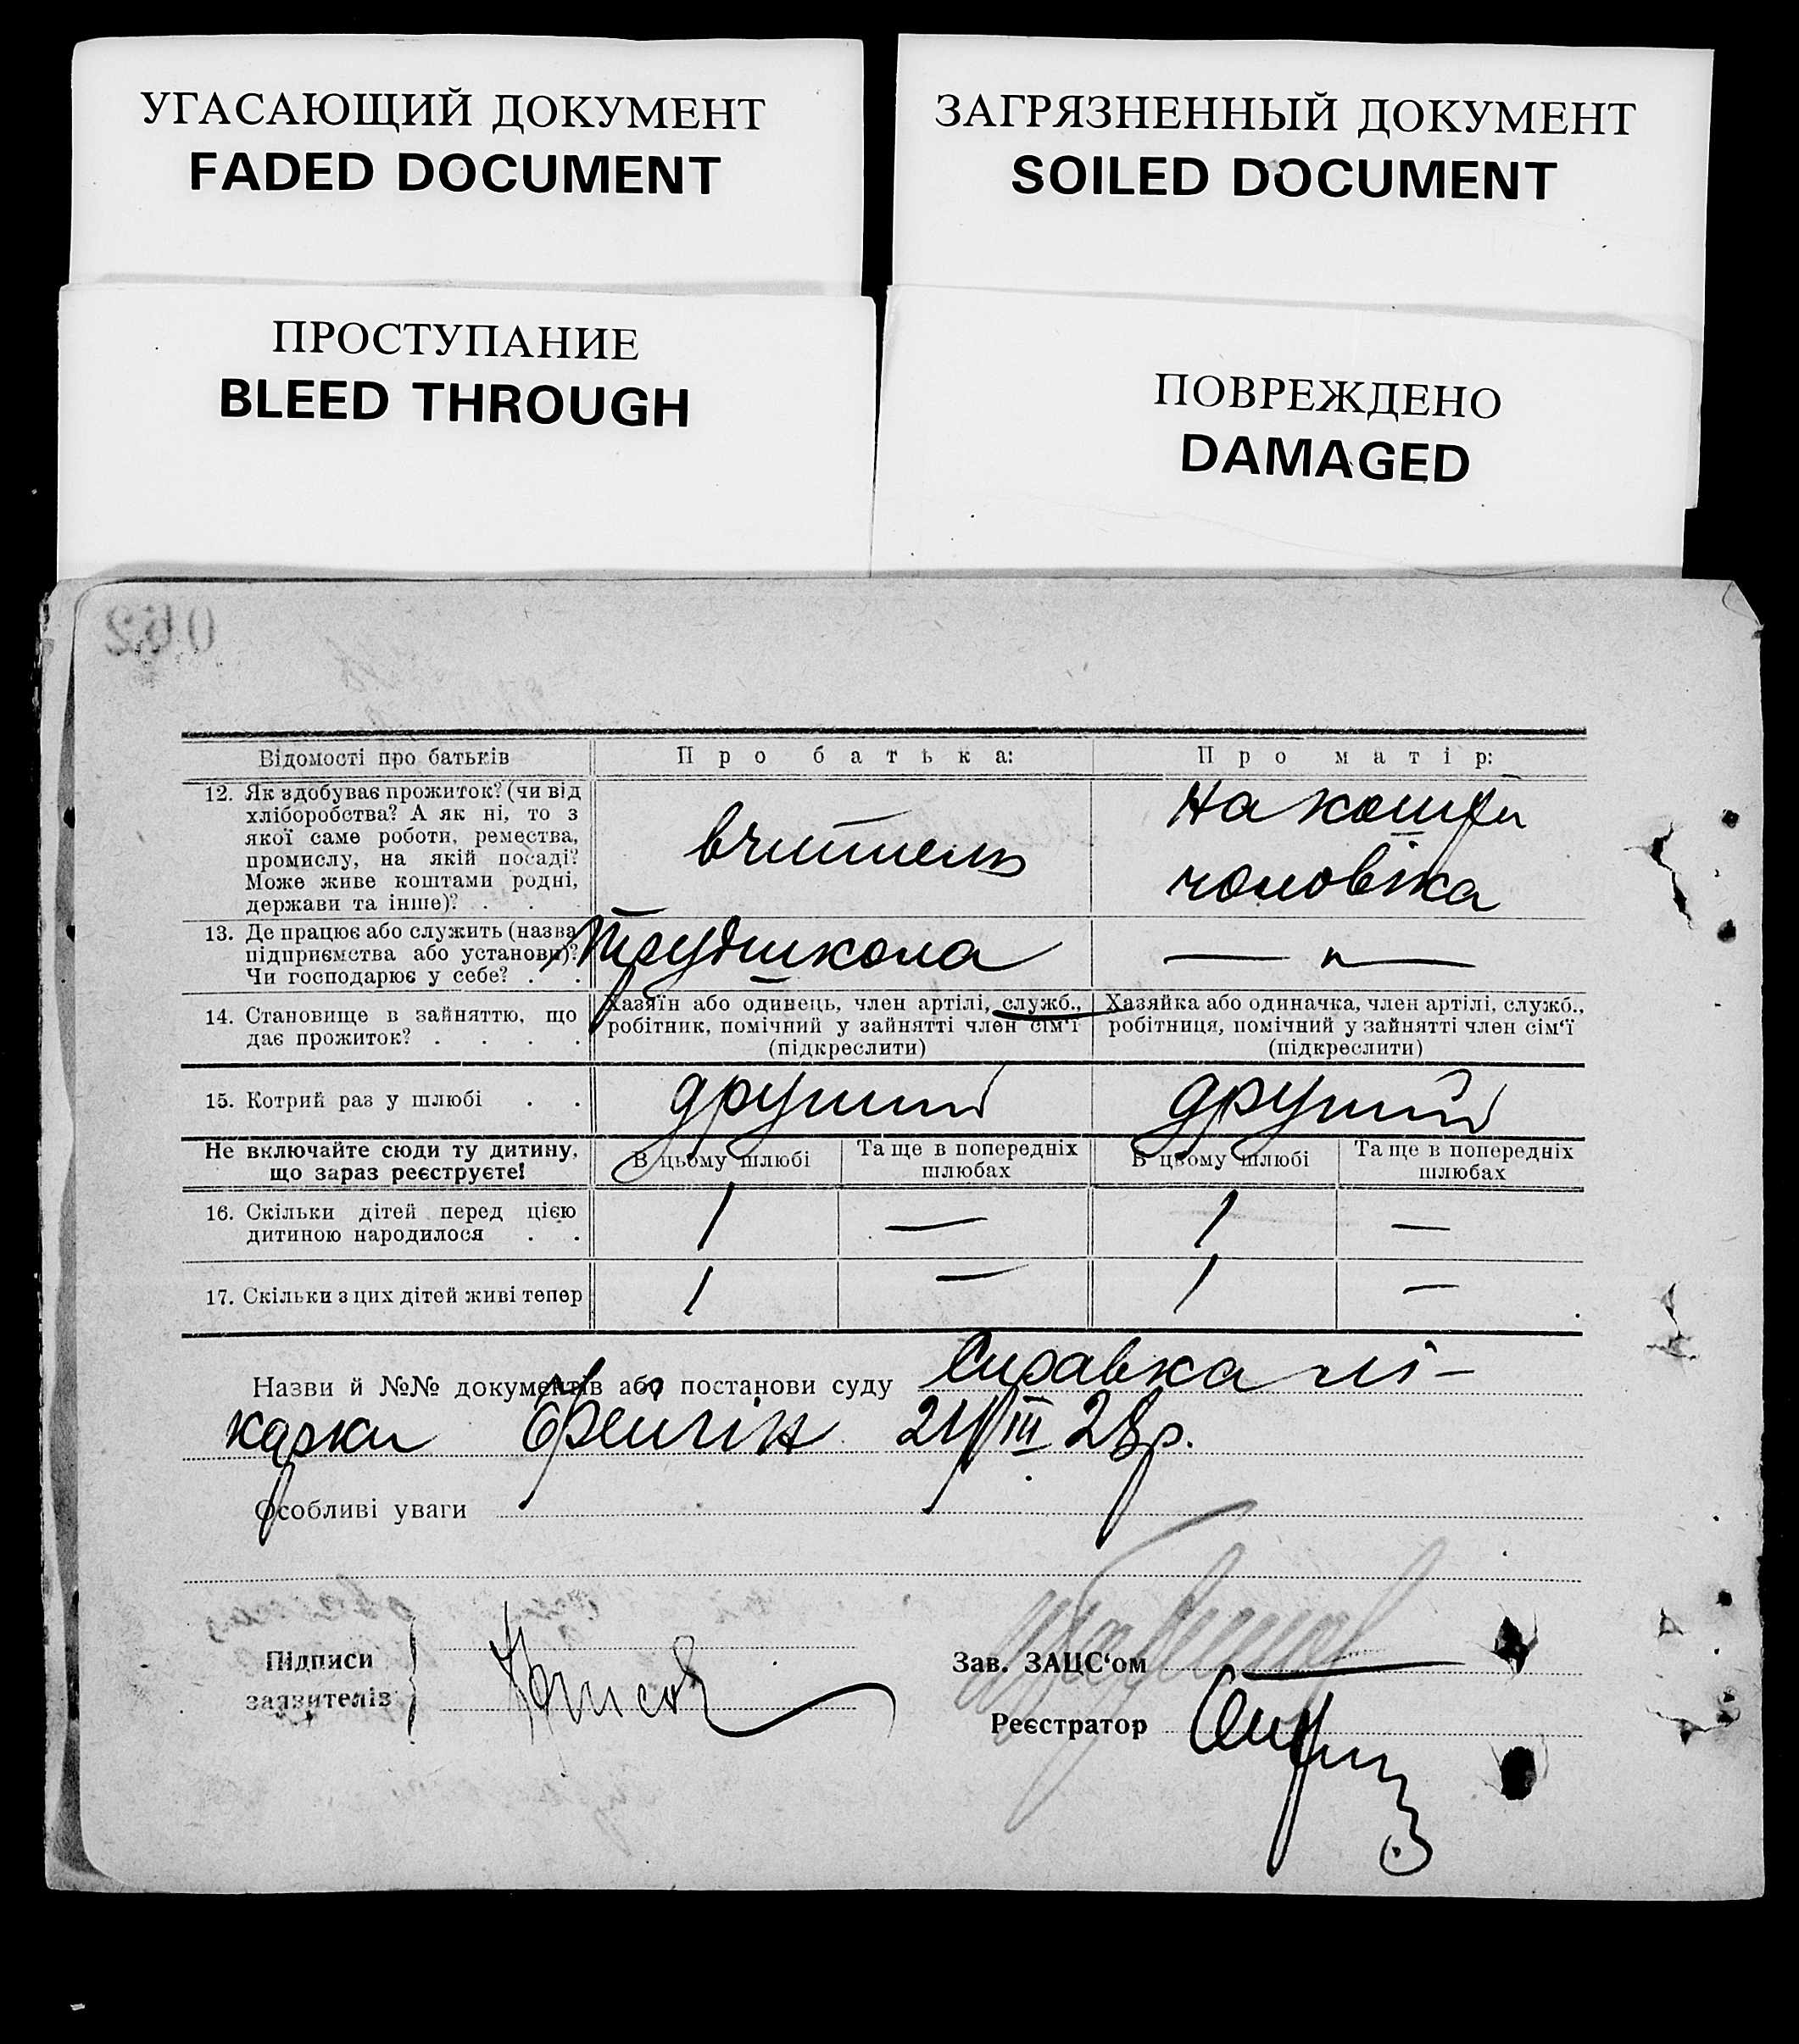 УГАСАЮЩИЙ ДОКУМЕНТ
FADED DOCUMENT
ЗАГРЯЗНЕННЫЙ ДОКУМЕНТ
SOILED DOCUMENT
ПРОСТУПАНИЕ
BLEED THROUGH
ПОВРЕЖДЕНО
DAMAGED
062
Відомості про батьків
Про батька:
Про матір:
12. Як здобуває прожиток? (чи від
хліборобства? А як ні, то з
якої саме роботи, ремества,
промислу, на якій посаді?
Може живе коштами родні,
держави та інше)? . .
вчитель
на кошти
чоловіка
13. Де працює або служить (назва
підприємства або установи)?
Чи господарює у себе? . .
Трудшкола
— „ —
14. Становище в зайняттю, що
дає прожиток? . . . .
Хазяїн або одинець, член артілі, служб.,
робітник, помічний у зайнятті член сім'ї
(підкреслити)
Хазяйка або одиначка, член артілі, служб.,
робітниця, помічний у зайнятті член сім'ї
(підкреслити)
15. Котрий раз у шлюбі . .
другий
другий
Не включайте сюди ту дитину,
що зараз реєструєте!
В цьому шлюбі
Та ще в попередніх
шлюбах
В цьому шлюбі
Та ще в попередніх
шлюбах
16. Скільки дітей перед цією
дитиною народилося . .
1 — 1 —
17. Скільки з цих дітей живі тепер
1 — 1 —
Назви й №№ документів або постанови суду Справка лі-
карки 21/III 28р.
Особливі уваги
Підписи
заявителів
Зав. ЗАЦС'ом
Реєстратор